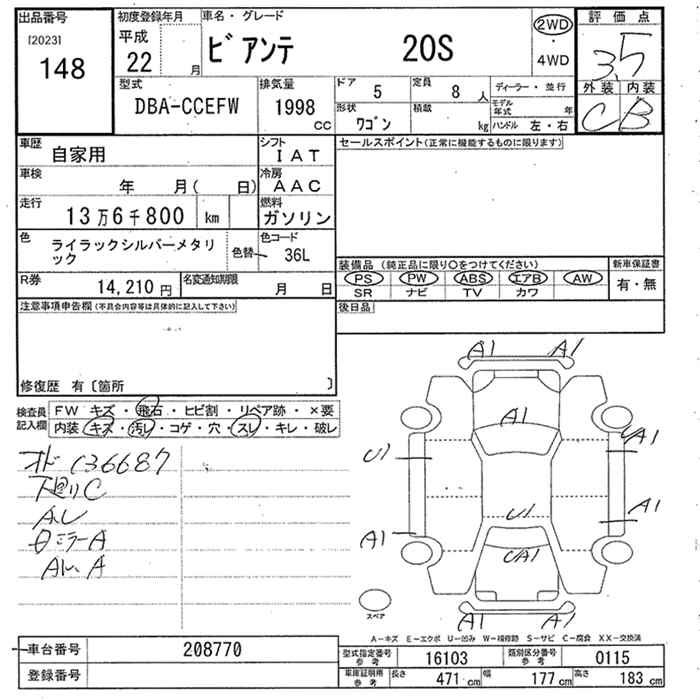 出品番号
[2023]
148
初度登録年月
平成
22 月
車名・グレード
ビアンテ 20S
2WD
・
4WD
評価点
3.5
外装 内装
C B
型式
DBA-CCEFW
排気量
1998
CC
ドア
5
定員
8 人
形状
ワゴン
積載
kg
ディーラー・並行
モデル年式 年
ハンドル 左・右
車歴
自家用
シフト
IAT
車検
年 月( 日)
冷房
AAC
走行
13万6千800 km
燃料
ガソリン
色
ライラックシルバーメタリック
色替
色コード
36L
R券
14,210円
名変通知期限
月 日
セールスポイント(正常に機能するものに限ります)
装備品 (純正品に限り○をつけてください)
PS PW ABS エアB AW
SR ナビ TV カワ
新車保証書
有・無
後日品
注意事項申告欄(不具合内容等は具体的に記入して下さい)
修復歴 有〔箇所 〕
検査員記入欄
FW キズ・飛石・ヒビ割・リペア跡・×要
内装 キズ・汚レ・コゲ・穴・スレ・キレ・破レ
136687
下廻りC
ミラーA
A1 A1
A1
U1 UA1
U1
A1 A1
UA1
A1 A1
スペア
A－キズ E－エクボ U－凹み W－補修跡 S－サビ C－腐食 XX－交換済
車台番号
208770
登録番号
型式指定番号 参考
16103
類別区分番号 参考
0115
車庫証明用 参考
長さ 471 cm
幅 177 cm
高さ 183 cm